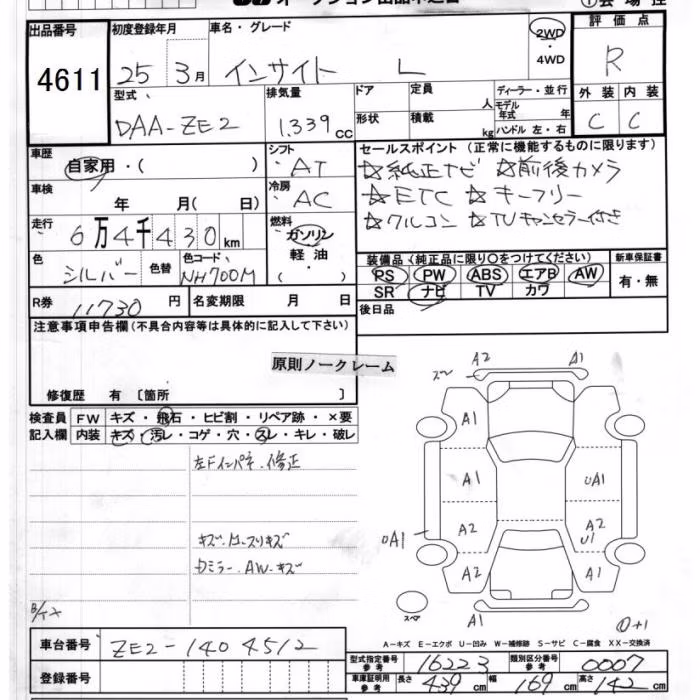 オークション出品申込書
①会場控
出品番号 4611
初度登録年月 25年 3月
車名・グレード インサイト L
2WD・4WD
評価点 R
型式 DAA-ZE2
排気量 1.339 cc
ドア 形状
定員 人
積載 kg
ディーラー・並行
モデル年式 年
ハンドル 左・右
外装 内装
C C
車歴 自家用・( )
シフト AT
セールスポイント (正常に機能するものに限ります)
☆純正ナビ ☆前後カメラ
☆ETC ☆キーフリー
☆クルコン ☆TVキャンセラー付き
車検 年 月( 日)
冷房 AC
走行 6万4千430km
燃料 ガソリン 軽油・( )
色 シルバー 色替 色コード NH700M
装備品 (純正品に限り○をつけてください)
PS PW ABS エアB AW
SR ナビ TV カワ
新車保証書 有・無
R券 11730円
名変期限 月 日
後日品
注意事項申告欄 (不具合内容等は具体的に記入して下さい)
原則ノークレーム
修復歴 有 [箇所 ]
検査員記入欄
FW キズ・飛石・ヒビ割・リペア跡・×要
内装 キズ・汚レ・コゲ・穴・スレ・キレ・破レ
左Fインパネ・修正
キズ・コスリキズ
Dミラー・AW・キズ
A2 A1
A1
A1 UA1
A2 A2 U1
UA1
A2 A1
スペア
A1
A-キズ E-エクボ U-凹み W-補修跡 S-サビ C-腐食 XX-交換済
車台番号 ZE2-1404512
登録番号
型式指定番号参考 16223
類別区分番号参考 0007
車庫証明用参考 長さ 439cm 幅 169cm 高さ 142cm